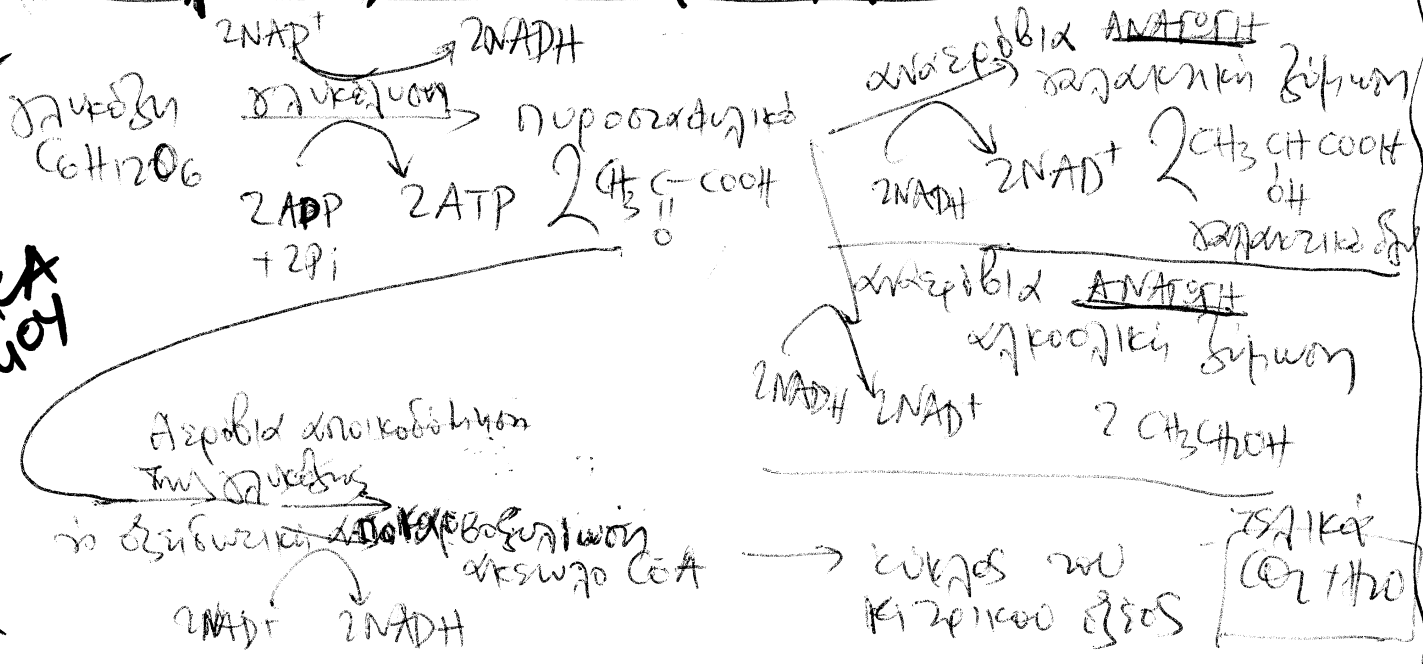 2NAD⁺ 2NADH
γλυκόζη γλυκόλυση πυροσταφυλικό
C6H12O6
2ADP 2ATP 2 CH3 C-COOH
+2Pi O
αναερόβια ΑΝΑΓΩΓΗ
γαλακτική ζύμωση
2NADH 2NAD⁺ 2 CH3 CH COOH
OH
γαλακτικό οξύ
αναερόβια ΑΝΑΓΩΓΗ
αλκοολική ζύμωση
2NADH 2NAD⁺ 2 CH3CH2OH
Αεροβια αποικοδόμηση
της γλυκόζης
οξειδωτική αποκαρβοξυλίωση
ακετυλο CoA κύκλος του
κιτρικού οξέος
2NAD⁺ 2NADH
τελικά
CO2 + H2O